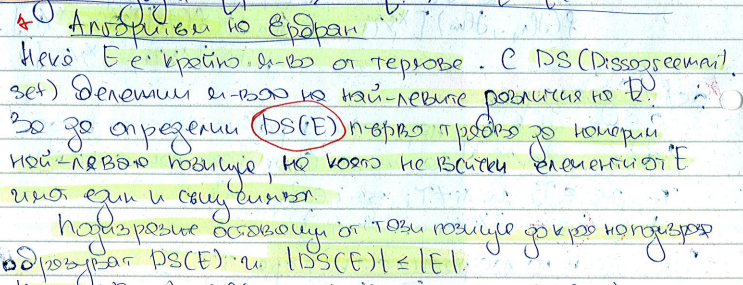 Алгоритъм на Ербран
Нека E е крайно м-во от термове. С DS (Dissogreement
set) бележим м-вото на най-левите различия на E.
За да определим DS(E) първо трябва да намерим
най-лявата позиция, на която не всички елементи от E
имат един и същ символ.
Подизразите оставащи от тази позиция до края на подизраза
образуват DS(E) и |DS(E)| ≤ |E|.